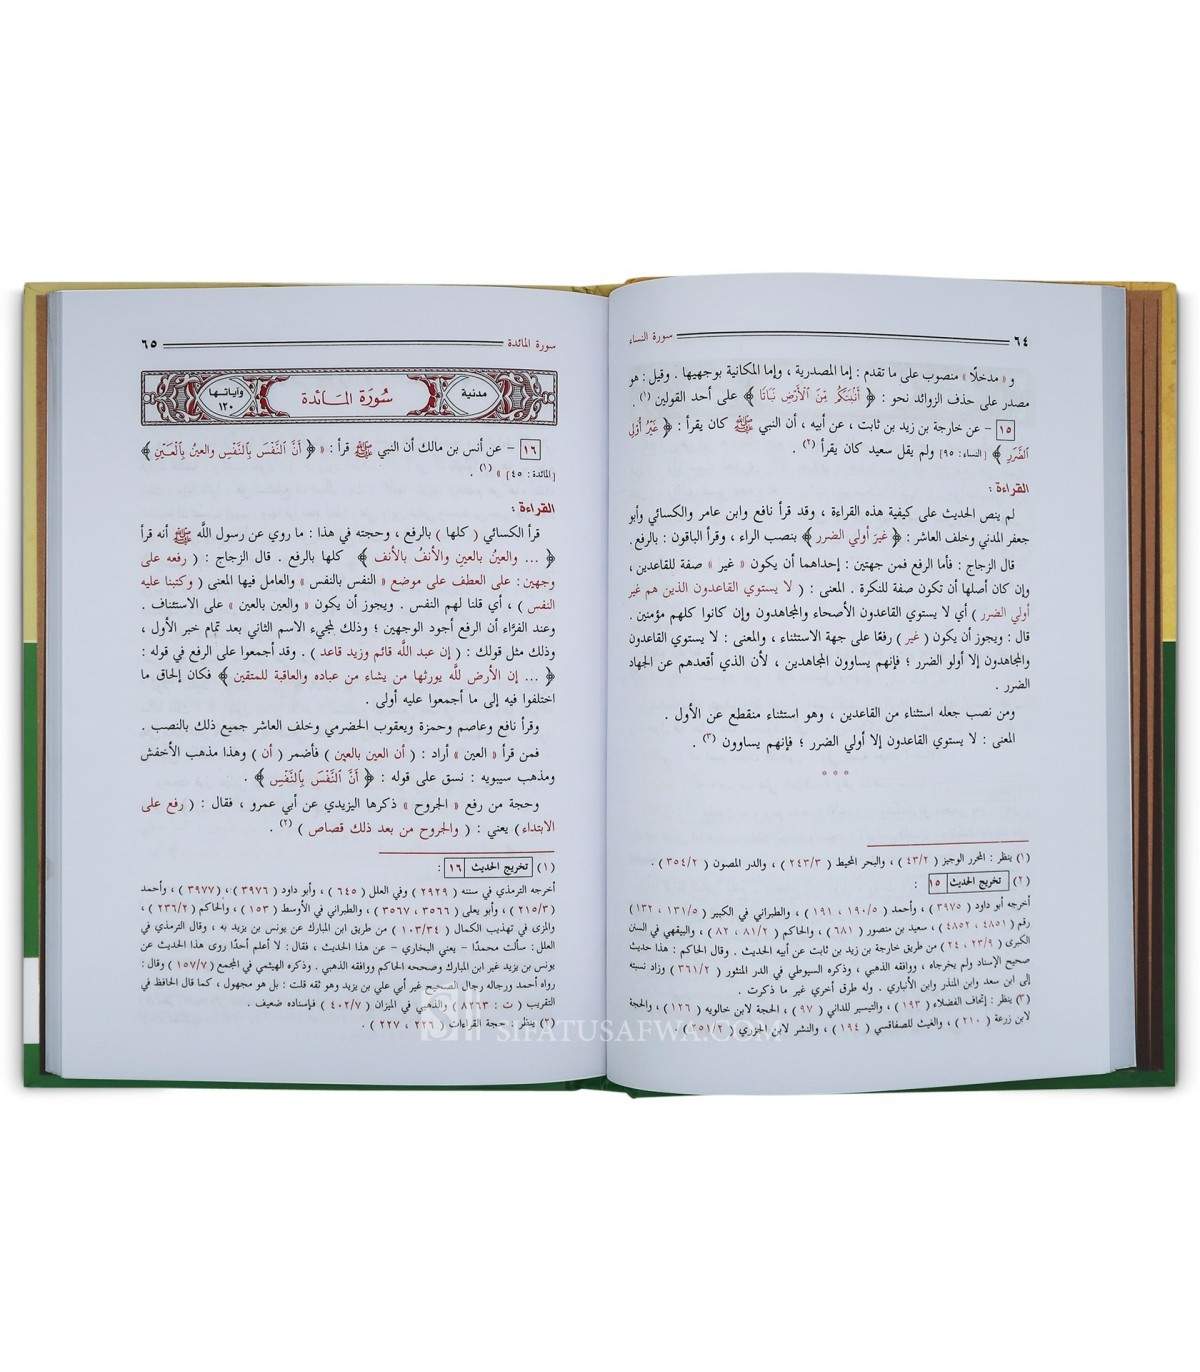 ٦٤ سورة النساء
و « مدخلًا » منصوب على ما تقدم : إما المصدرية ، وإما المكانية بوجهيها . وقيل : هو
مصدر على حذف الزوائد نحو : ﴿ أَنۢبَتَكُم مِّنَ ٱلْأَرْضِ نَبَاتًا ﴾ على أحد القولين (١) .
١٥ - عن خارجة بن زيد بن ثابت ، عن أبيه ، أن النبي ﷺ كان يقرأ : ﴿ غَيْرُ أُوْلِي
ٱلضَّرَرِ ﴾ [النساء: ٩٥] ولم يقل سعيد كان يقرأ (٢) .
القراءة :
لم ينص الحديث على كيفية هذه القراءة ، وقد قرأ نافع وابن عامر والكسائي وأبو
جعفر المدني وخلف العاشر : ﴿ غيرَ أولي الضرر ﴾ بنصب الراء ، وقرأ الباقون : بالرفع.
قال الزجاج : فأما الرفع فمن جهتين : إحداهما أن يكون « غير » صفة للقاعدين ،
وإن كان أصلها أن تكون صفة للنكرة . المعنى : ( لا يستوي القاعدون الذين هم غير
أولي الضرر ) أي لا يستوي القاعدون الأصحاء والمجاهدون وإن كانوا كلهم مؤمنين .
قال : ويجوز أن يكون ( غير ) رفعًا على جهة الاستثناء ، والمعنى : لا يستوي القاعدون
والمجاهدون إلا أولو الضرر ؛ فإنهم يساوون المجاهدين ، لأن الذي أقعدهم عن الجهاد
الضرر .
ومن نصب جعله استثناء من القاعدين ، وهو استثناء منقطع عن الأول .
المعنى : لا يستوي القاعدون إلا أولي الضرر ؛ فإنهم يساوون (٣) .
* * *
(١) ينظر : المحرر الوجيز ( ٤٣/٢ ) ، والبحر المحيط ( ٢٤٣/٣ ) ، والدر المصون ( ٣٥٤/٢ ) .
(٢) تخريج الحديث ١٥ :
أخرجه أبو داود ( ٣٩٧٥ ) ، وأحمد ( ١٩٠/٥ ، ١٩١ ) ، والطبراني في الكبير ( ١٣١/٥ ، ١٣٢ )
رقم ( ٤٨٥١ ، ٤٨٥٢ ) ، سعيد بن منصور ( ٦٨١ ) ، والحاكم ( ٨١/٢ ، ٨٢ ) ، والبيهقي في السنن
الكبرى ( ٢٣/٩ ، ٢٤ ) من طريق خارجة بن زيد بن ثابت عن أبيه الحديث . وقال الحاكم : هذا حديث
صحيح الإسناد ولم يخرجاه ، ووافقه الذهبي ، وذكره السيوطي في الدر المنثور ( ٣٦١/٢ ) وزاد نسبته
إلى ابن سعد وابن المنذر وابن الأنباري . وله طرق أخرى غير ما ذكرت .
(٣) ينظر : إتحاف الفضلاء ( ١٩٣ ) ، والتيسير للداني ( ٩٧ ) ، الحجة لابن خالويه ( ١٢٦ ) ، والحجة
لابن زرعة ( ٢١٠ ) ، والغيث للصفاقسي ( ١٩٤ ) ، والنشر لابن الجزري ( ٢٥١/٢ ) .
سورة المائدة ٦٥
مدنية سُورَة المَائدة وآياتها ١٢٠
١٦ - عن أنس بن مالك أن النبي ﷺ قرأ : « ﴿ أَنَّ ٱلنَّفْسَ بِٱلنَّفْسِ والعينُ بِٱلْعَيْنِ ﴾
[المائدة: ٤٥] » (١) .
القراءة :
قرأ الكسائي ( كلها ) بالرفع ، وحجته في هذا : ما روي عن رسول اللَّه ﷺ أنه قرأ
﴿ ... والعينُ بالعينِ والأنفُ بالأنف ﴾ كلها بالرفع . قال الزجاج : ( رفعه على
وجهين : على العطف على موضع « النفس بالنفس » والعامل فيها المعنى ( وكتبنا عليه
النفس ) ، أي قلنا لهم النفس . ويجوز أن يكون « والعين بالعين » على الاستئناف .
وعند الفرَّاء أن الرفع أجود الوجهين ؛ وذلك لمجيء الاسم الثاني بعد تمام خبر الأول ،
وذلك مثل قولك : ( إن عبد اللَّه قائم وزيد قاعد ) . وقد أجمعوا على الرفع في قوله :
﴿ ... إن الأرض للَّه يورثها من يشاء من عباده والعاقبة للمتقين ﴾ فكان إلحاق ما
اختلفوا فيه إلى ما أجمعوا عليه أولى .
وقرأ نافع وعاصم وحمزة ويعقوب الحضرمي وخلف العاشر جميع ذلك بالنصب .
فمن قرأ « العين » أراد : ( أن العين بالعين ) فأضمر ( أن ) وهذا مذهب الأخفش
ومذهب سيبويه : نسق على قوله : ﴿ أَنَّ ٱلنَّفْسَ بِٱلنَّفْسِ ﴾ .
وحجة من رفع « الجروح » ذكرها اليزيدي عن أبي عمرو ، فقال : ( رفع على
الابتداء ) يعني : ( والجروح من بعد ذلك قصاص ) (٢) .
(١) تخريج الحديث ١٦ :
أخرجه الترمذي في سننه ( ٢٩٢٩ ) وفي العلل ( ٦٤٥ ) ، وأبو داود ( ٣٩٧٦ ) ، ( ٣٩٧٧ ) ، وأحمد
( ٢١٥/٣ ) ، وأبو يعلى ( ٣٥٦٦ ، ٣٥٦٧ ) ، والطبراني في الأوسط ( ١٥٣ ) ، والحاكم ( ٢٣٦/٢ ) ،
والمزي في تهذيب الكمال ( ١٠٣/٣٤ ) من طريق ابن المبارك عن يونس بن يزيد به ، وقال الترمذي في
العلل : سألت محمدًا - يعني البخاري - عن هذا الحديث ، فقال : لا أعلم أحدًا روى هذا الحديث عن
يونس بن يزيد غير ابن المبارك وصححه الحاكم ووافقه الذهبي . وذكره الهيثمي في المجمع ( ١٥٧/٧ ) وقال :
رواه أحمد ورجاله رجال الصحيح غير أبي علي بن يزيد وهو ثقه قلت : بل هو مجهول ، كما قال الحافظ في
التقريب ( ت : ٨٢٦٣ ) والذهبي في الميزان ( ٤٠٢/٧ ) فإسناده ضعيف .
(٢) ينظر : حجة القراءات ( ٢٢٦ ، ٢٢٧ ) .
SIFATUSAFWA.COM